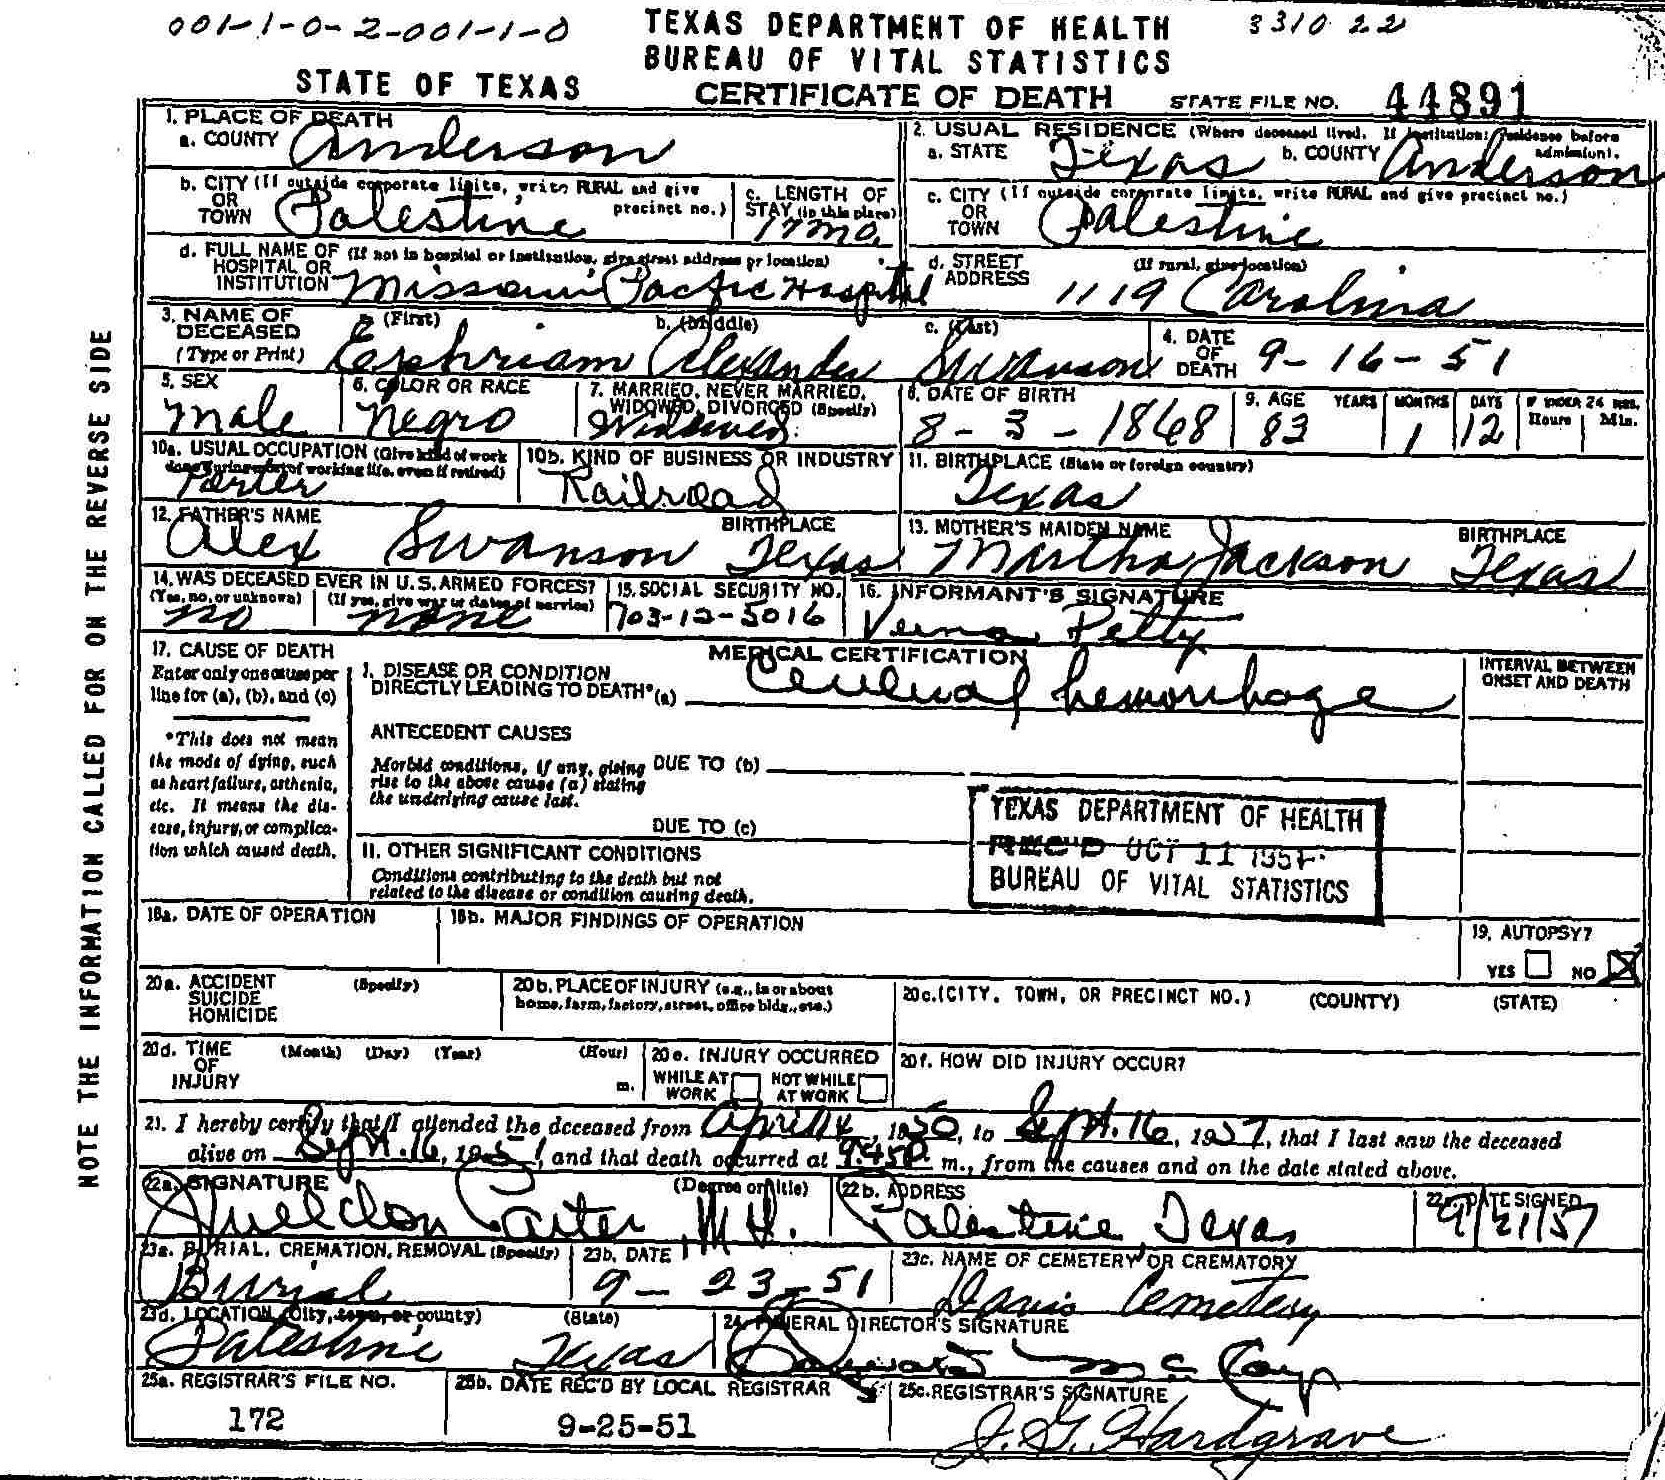 001-1-0-2-001-1-0 TEXAS DEPARTMENT OF HEALTH 3310 22
BUREAU OF VITAL STATISTICS
STATE OF TEXAS CERTIFICATE OF DEATH STATE FILE NO. 44891
NOTE THE INFORMATION CALLED FOR ON THE REVERSE SIDE
1. PLACE OF DEATH
a. COUNTY Anderson
2. USUAL RESIDENCE (Where deceased lived. If institution: residence before admission).
a. STATE Texas b. COUNTY Anderson
b. CITY (If outside corporate limits, write RURAL and give precinct no.) OR TOWN Palestine
c. LENGTH OF STAY (in this place) 17 mo.
c. CITY (If outside corporate limits, write RURAL and give precinct no.) OR TOWN Palestine
d. FULL NAME OF (If not in hospital or institution, give street address or location) HOSPITAL OR INSTITUTION Missouri Pacific Hospital
d. STREET ADDRESS (If rural, give location) 1119 Carolina
3. NAME OF DECEASED (Type or Print) a. (First) Ephriam b. (Middle) Alexander c. (Last) Swanson
4. DATE OF DEATH 9-16-51
5. SEX Male
6. COLOR OR RACE Negro
7. MARRIED, NEVER MARRIED, WIDOWED, DIVORCED (Specify) Widowed
8. DATE OF BIRTH 8-3-1868
9. AGE YEARS 83 MONTHS 1 DAYS 12 IF UNDER 24 HRS. Hours Min.
10a. USUAL OCCUPATION (Give kind of work done during most of working life, even if retired) Porter
10b. KIND OF BUSINESS OR INDUSTRY Railroad
11. BIRTHPLACE (State or foreign country) Texas
12. FATHER'S NAME Alex Swanson BIRTHPLACE Texas
13. MOTHER'S MAIDEN NAME Martha Jackson BIRTHPLACE Texas
14. WAS DECEASED EVER IN U.S. ARMED FORCES?
(Yes, no, or unknown) no (If yes, give war or dates of service) none
15. SOCIAL SECURITY NO. 703-12-5016
16. INFORMANT'S SIGNATURE Petty
17. CAUSE OF DEATH
Enter only one cause per
line for (a), (b), and (c)
*This does not mean
the mode of dying, such
as heart failure, asthenia,
etc. It means the dis-
ease, injury, or complica-
tion which caused death.
MEDICAL CERTIFICATION
I. DISEASE OR CONDITION
DIRECTLY LEADING TO DEATH* (a) Cerebral hemorrhage
INTERVAL BETWEEN
ONSET AND DEATH
ANTECEDENT CAUSES
Morbid conditions, if any, giving DUE TO (b)
rise to the above cause (a) stating
the underlying cause last.
DUE TO (c)
II. OTHER SIGNIFICANT CONDITIONS
Conditions contributing to the death but not
related to the disease or condition causing death.
TEXAS DEPARTMENT OF HEALTH
REC'D OCT 11 1951
BUREAU OF VITAL STATISTICS
18a. DATE OF OPERATION
18b. MAJOR FINDINGS OF OPERATION
19. AUTOPSY?
YES NO X
20a. ACCIDENT (Specify)
SUICIDE
HOMICIDE
20b. PLACE OF INJURY (e.g., in or about
home, farm, factory, street, office bldg., etc.)
20c. (CITY, TOWN, OR PRECINCT NO.) (COUNTY) (STATE)
20d. TIME OF INJURY (Month) (Day) (Year) (Hour) m.
20e. INJURY OCCURRED
WHILE AT WORK NOT WHILE AT WORK
20f. HOW DID INJURY OCCUR?
21. I hereby certify that I attended the deceased from April 14, 1950, to Sept. 16, 1951, that I last saw the deceased
alive on Sept. 16, 1951, and that death occurred at 9:45P m., from the causes and on the date stated above.
22a. SIGNATURE (Degree or title) Carter, M.D.
22b. ADDRESS Palestine, Texas
22c. DATE SIGNED 9/21/51
23a. BURIAL, CREMATION, REMOVAL (Specify) Burial
23b. DATE 9-23-51
23c. NAME OF CEMETERY OR CREMATORY Davis Cemetery
23d. LOCATION (City, town, or county) Palestine (State) Texas
24. FUNERAL DIRECTOR'S SIGNATURE
25a. REGISTRAR'S FILE NO. 172
25b. DATE REC'D BY LOCAL REGISTRAR 9-25-51
25c. REGISTRAR'S SIGNATURE J. G. Hardgrave